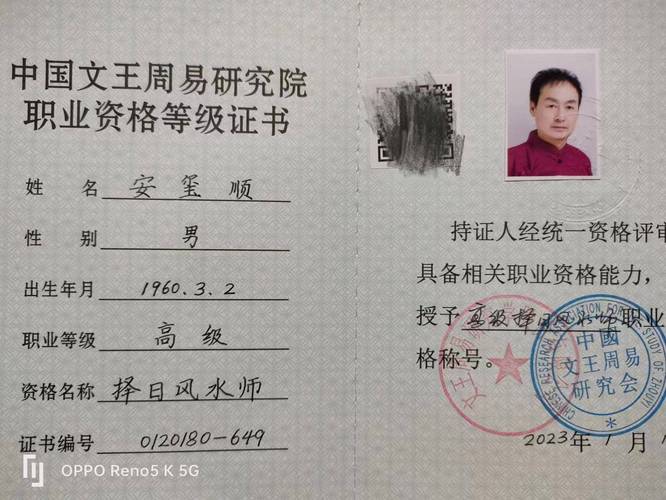 中国文王周易研究院
职业资格等级证书
姓 名 安玺顺
性 别 男
出生年月 1960.3.2
职业等级 高级
资格名称 择日风水师
证书编号 0120180-649
持证人经统一资格评审
具备相关职业资格能力，
授予 高级择日风水师 职业
格称号。
中國
文王周易
研究会
CHINESE RESEARCH ASSOCIATION FOR THE STUDY OF ZHOUYI
文王周易
2023年1月1
OPPO Reno5 K 5G